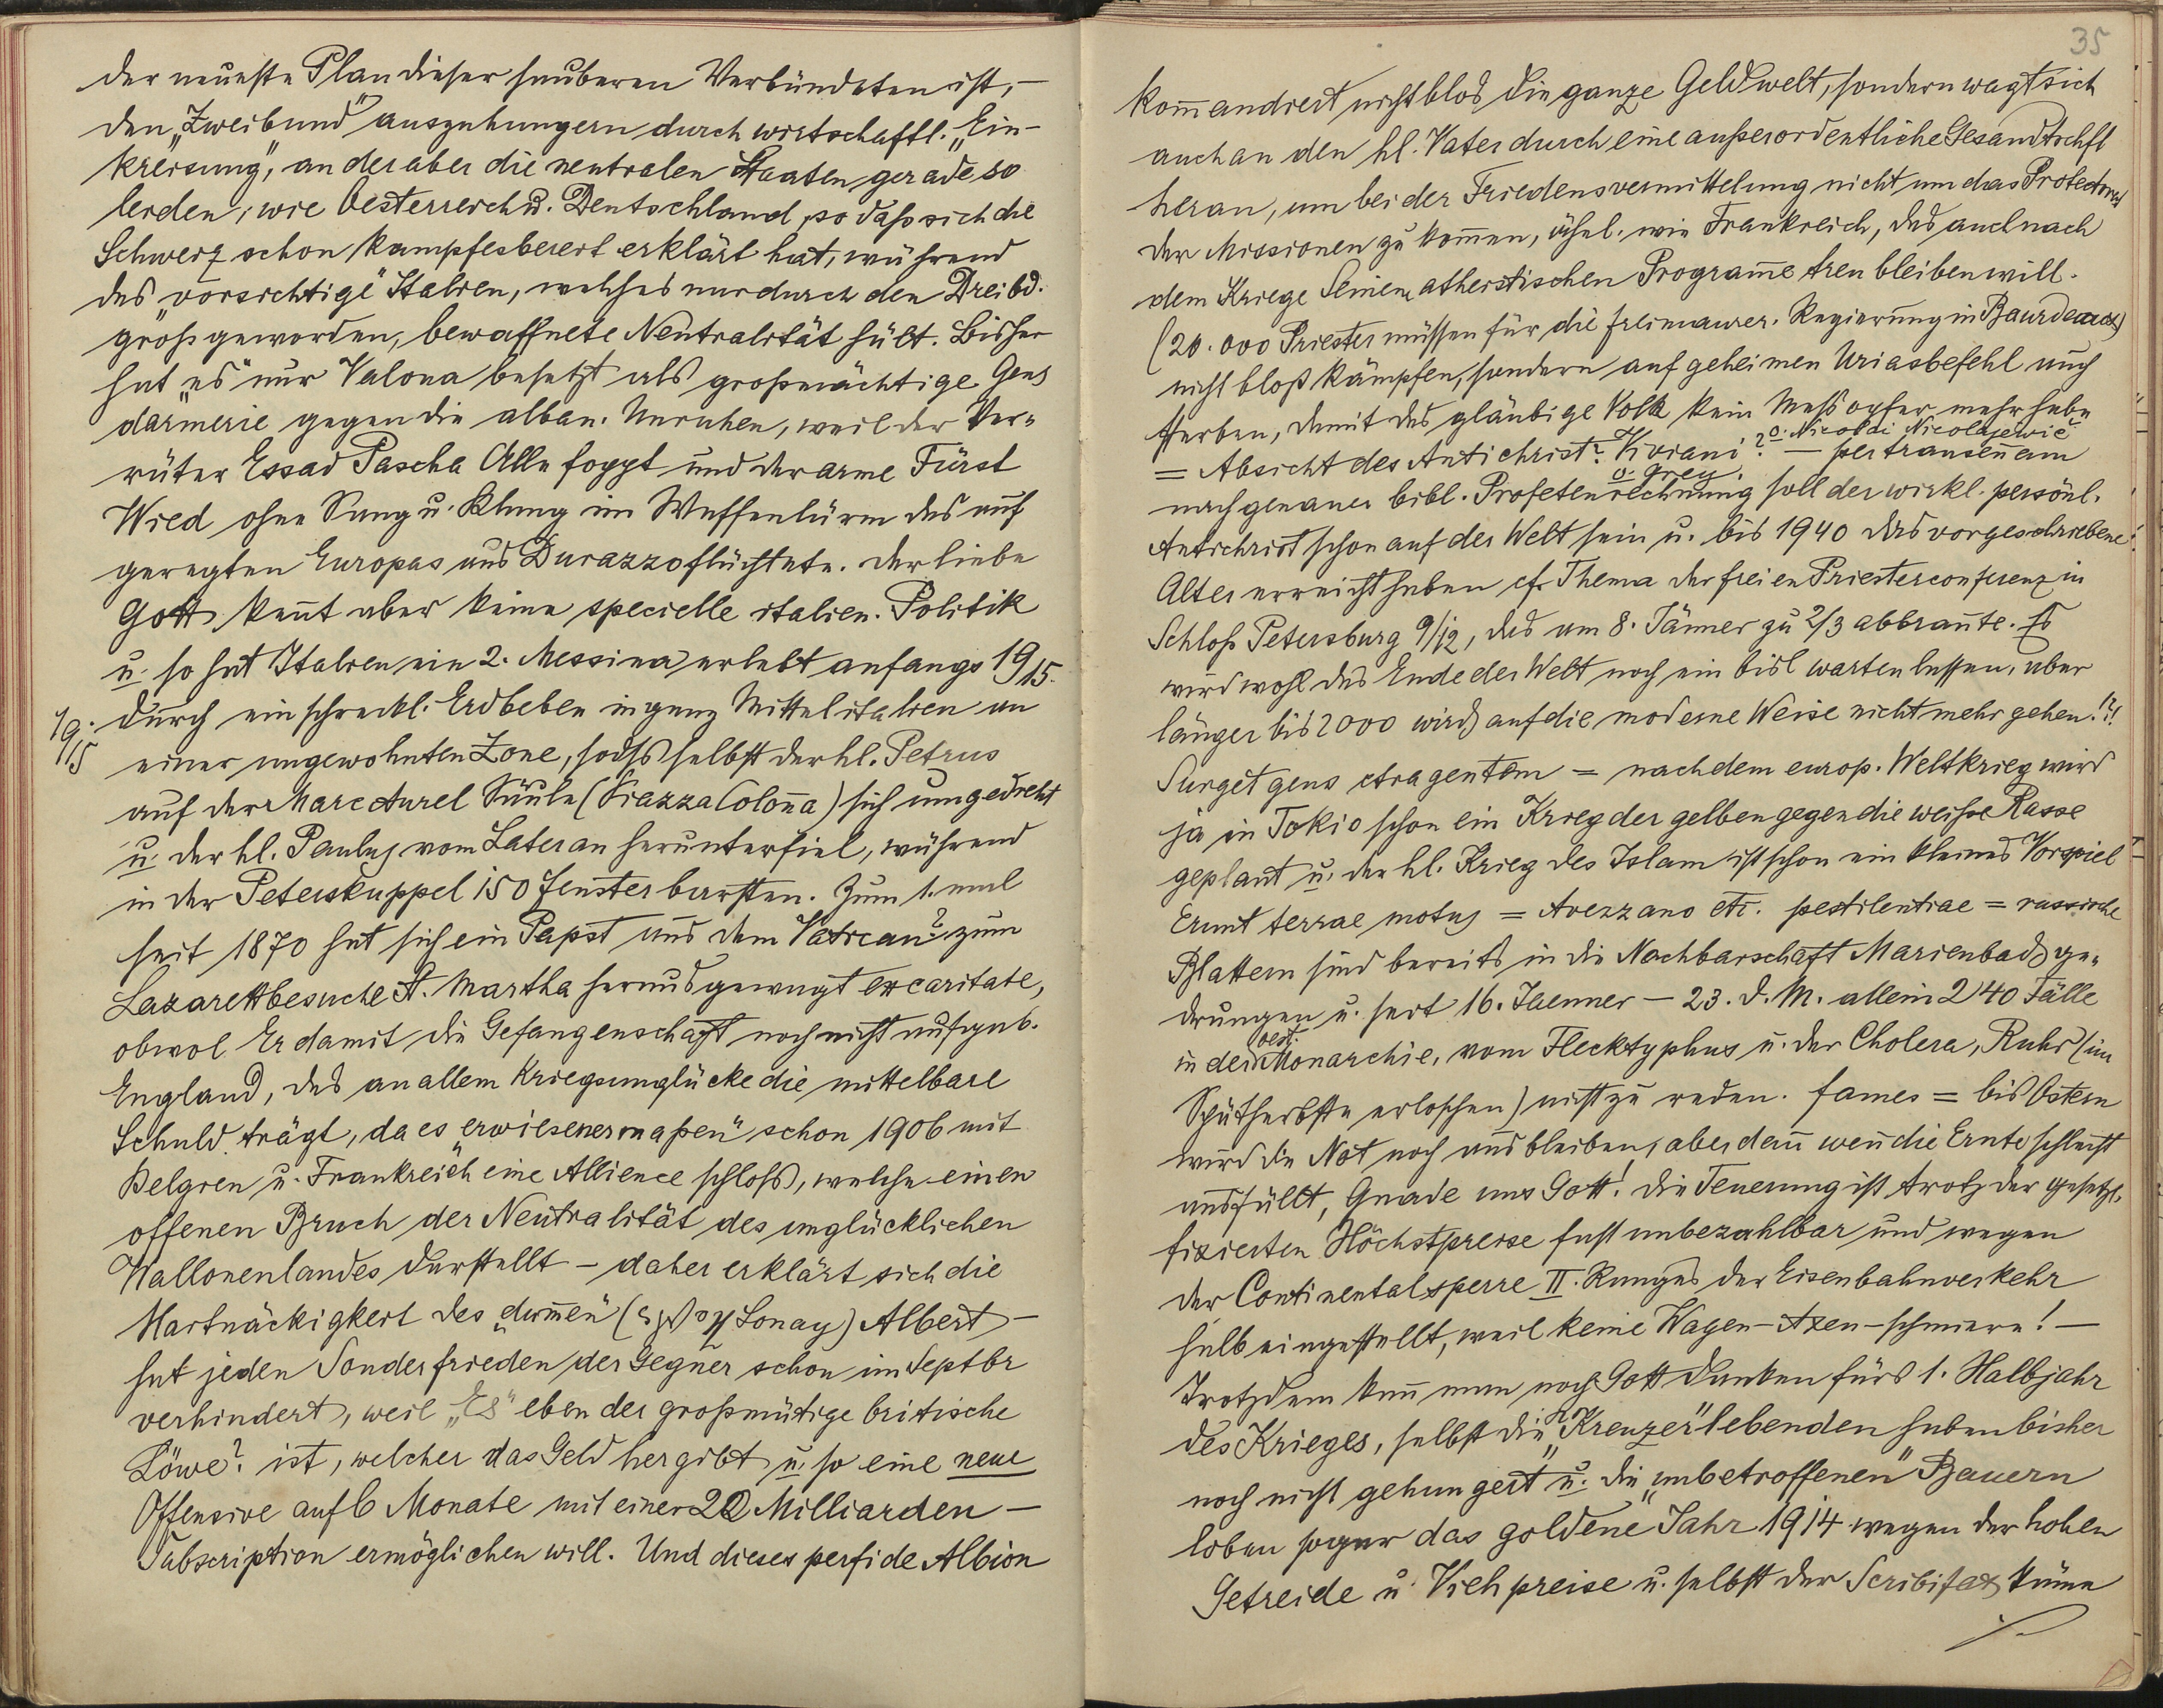 der neueste Plan dieser sauberen Verbündeten ist, –
den „Zweibund" auszuhungern durch wirtschaftl. „Ein-
kreisung", an der aber die neutralen Staaten gerade so
leiden, wie Oesterreich u. Deutschland, so daß sich die
Schweiz schon kampfesbereit erklärt hat, während
das „vorsichtige" Italien, welches nur durch den Dreibd.
groß geworden, bewaffnete Neutralität hält. Bisher
hat „es" nur Valona besetzt als großmächtige Gens
darmerie gegen die alban. Unruhen, weil der Ver-
räter Essad Pascha Alle foppt und der arme Fürst
Wied ohne Sang u. Klang im Waffenlärm des auf
geregten Europas aus Durazzo flüchtete. Der liebe
Gott kennt aber keine specielle italien. Politik
u. so hat Italien ein 2. Messina erlebt anfangs 19/15.
19./15 durch ein schreckl. Erdbeben in ganz Mittelitalien an
einer ungewohnten Zone, sodß selbst der hl. Petrus
auf der Marc Aurel Säule (Piazza Colonna) sich umgedreht
u. der hl. Paulus vom Lateran herunterfiel, während
in der Peterskuppel 150 Fenster barsten. Zum 1. mal
seit 1870 hat sich ein Papst aus dem Vatican? zum
Lazarettbesuche St. Martha herausgewagt ex caritate,
obwol Er damit die Gefangenschaft noch nicht aufgab.
England, das an allem Kriegsunglücke die mittelbare
Schuld trägt, da es „erwiesenermaßen" schon 1906 mit
Belgien u. Frankreich eine Allience schloß, welche einen
offenen Bruch der Neutralität des unglücklichen
Wallonenlandes darstellt – daher erklärt sich die
Hartnäckigkeit des „dummen" ( Lonay) Albert –
hat jeden Sonderfrieden der Gegner schon im Septbr
verhindert, weil „Es" eben der großmütige britische
Löwe? ist, welcher das Geld hergibt u. so eine neue
Offensive auf 6 Monate mit einer 20 Milliarden –
Subscription ermöglichen will. Und dieses perfide Albion
35
kommandiert nicht blos die ganze Geldwelt, sondern wagt sich
auch an den hl. Vater durch eine außerordentliche Gesandtschft
heran, um bei der Friedensvermittelung nicht um das Protectorat
der Missionen zu kommen, ähnl. wie Frankreich, das auch nach
dem Kriege Seinem atheistischen Programme treu bleiben will.
(20.000 Priester müssen für die freimaurer. Regierung in Baurdeaux)
nicht bloß kämpfen, sondern auf geheimen Uriasbefehl auch
sterben, damit das gläubige Volk kein Meßopfer mehr habe
= Absicht des Antichrist? Viviani? o. Nicolai Nicolajewič – per transennam
o. Grey
nach genauer bibl. Profetenrechnung soll der wirkl. persönl.
Antichrist schon auf der Welt sein u. bis 1940 das vorgeschriebene!
Alter erreicht haben cfr Thema der freien Priesterconferenz in
Schloß Petersburg 9/12, das am 8. Jänner zu 2/3 abbrannte. Es
wird wohl das Ende der Welt noch ein bisl warten lassen, aber
länger bis 2000 wird auf die moderne Weise nicht mehr gehen!?!
Surget gens ctra gentem = nach dem europ. Weltkrieg wird
ja in Tokio schon ein Krieg der gelben gegen die weiße Rasse
geplant u. der hl. Krieg des Islam ist schon ein kleines Vorspiel
Erunt terrae motus = Avezzano etc. pestilentiae = russische
Blattern sind bereits in die Nachbarschaft Marienbads ge-
drungen u. seit 16. Jaenner – 23. d. M. allein 240 Fälle
in der oest. Monarchie, vom Flecktyphus u. der Cholera, Ruhr (im
Spätherbste erloschen) nicht zu reden. fames = bis Ostern
wird die Not noch ausbleiben, aber dann wenn die Ernte schlecht
ausfällt, Gnade uns Gott! Die Teuerung ist trotz der gesetzl.
fixierten Höchstpreise fast unbezahlbar und wegen
der Continentalsperre II. Ranges der Eisenbahnverkehr
halb eingestellt, weil keine Wagen-Axen-schmiere! –
Trotzdem kann man noch Gott danken fürs 1. Halbjahr
des Krieges, selbst die „Kreuzer" lebenden haben bisher
noch nicht gehungert u. die „unbetroffenen" Bauern
loben sogar das „goldene" Jahr 1914 wegen der hohen
Getreide u. Viehpreise u. selbst der Scribifax käme